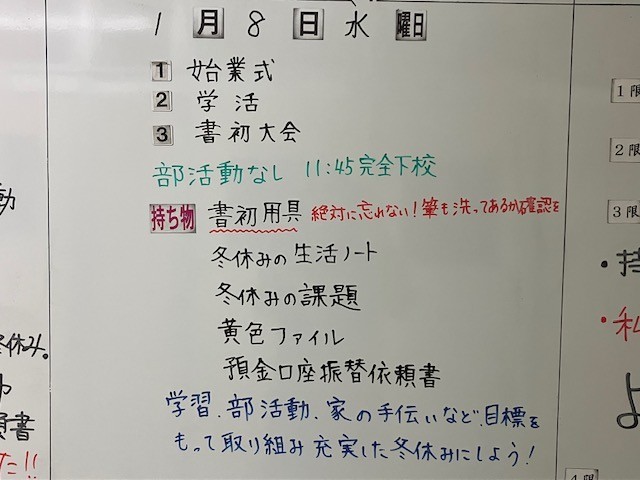 1月8日水曜日
1 始業式
2 学活
3 書初大会
部活動なし 11:45完全下校
持ち物 書初用具 絶対に忘れない!筆も洗ってあるか確認を
冬休みの生活ノート
冬休みの課題
黄色ファイル
預金口座振替依頼書
学習、部活動、家の手伝いなど、目標を
もって取り組み充実した冬休みにしよう!
動
冬休み。
書
た!!
1限
2限
3限
・持
・私
よ
4限